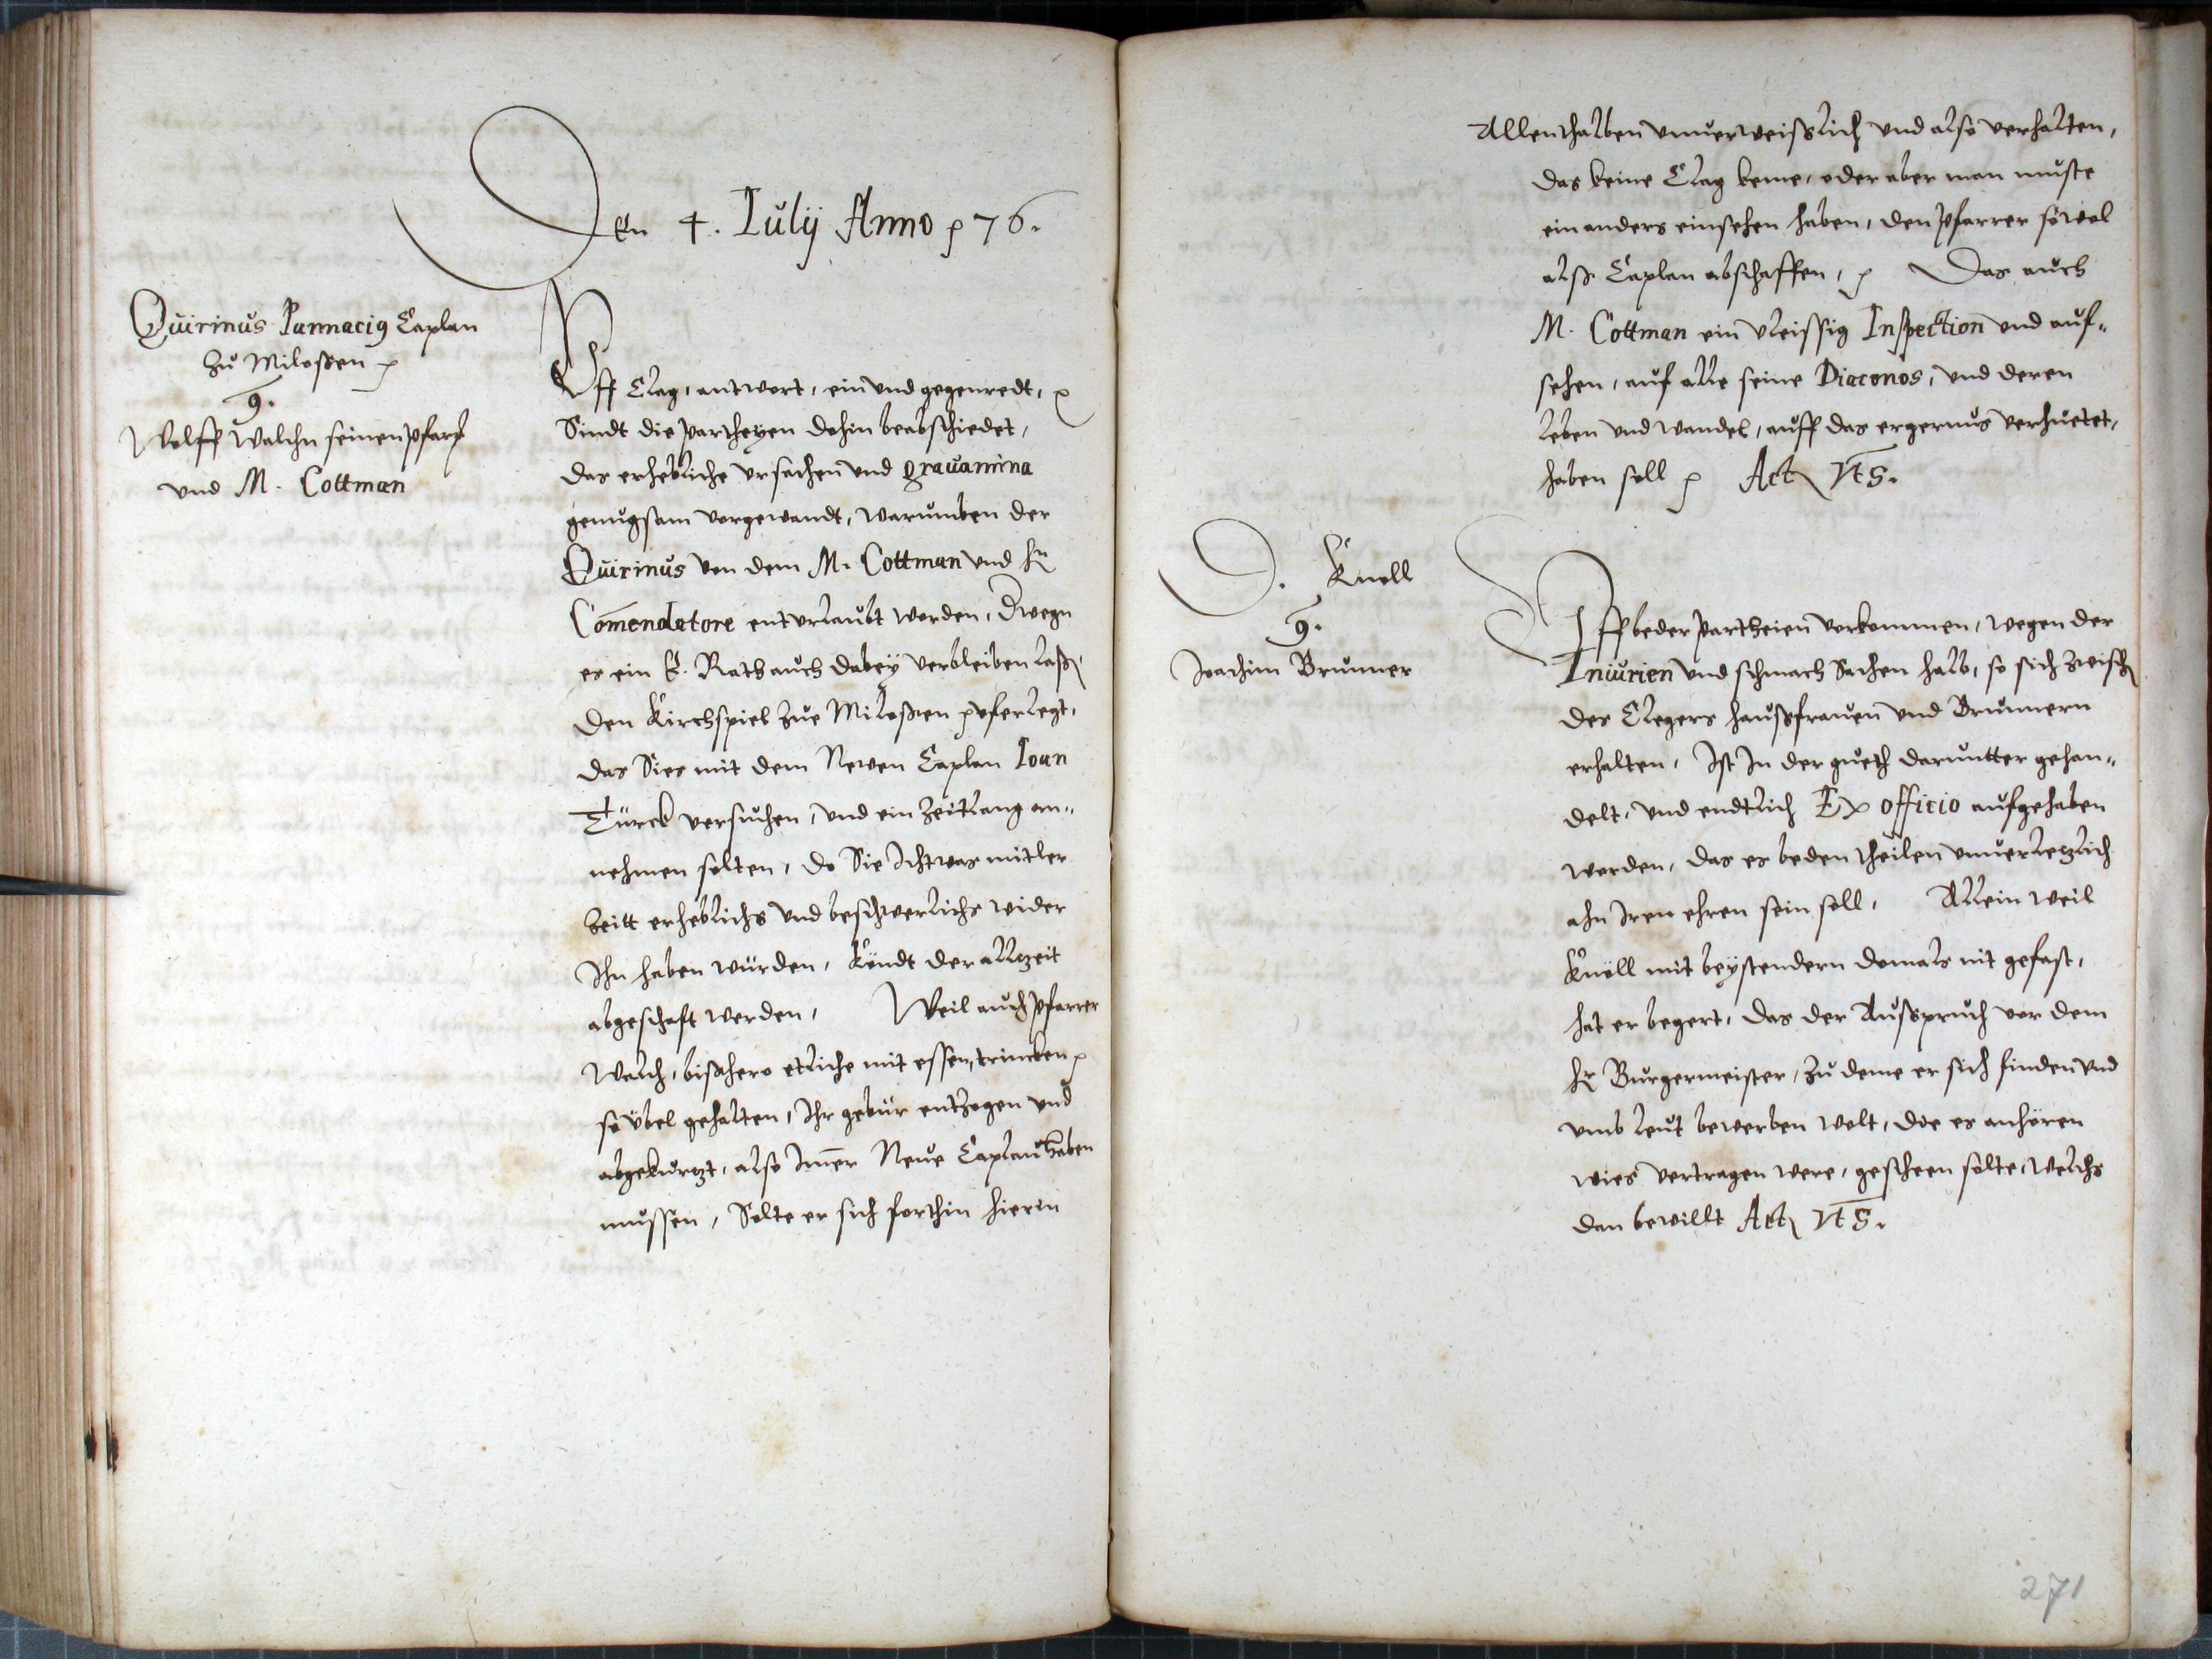 Den 4. Iulij Anno ꝛ 76.
Quirinus Pannacig Caplan
zu Miloßen ꝛ
9.
Wolff Walchn seinen pfarꝛ
vnd M. Cottman
Vff Clag, antwort, ein vnd gegenredt, ꝛ
Sindt die partheyen dohin beabschiedet,
das erhebliche vrsachen vnd grauamina
genugsam vorgewandt, warumben der
Quirinus von dem M. Cottman vnd hn
Com̄endatore enturlaubt worden, Dwegn
es ein E. Rath auch dabey verbleiben laß,
den Kirchspiel zue Miloßen ꝛ vferlegt,
das Sies mit dem Newen Caplan Ioan
Türck versuchen, vnd ein Zeitlang an„
nehmen solten, do Sie Ichtwas mitler
Zeitt erheblichs vnd beschwerlichs wider
Ihn haben würden, Köndt der allzeit
abgeschaft werden, Weil auch pfarrer
Walch, bishero etliche mit essen, trincken ꝛ
so übel gehalten, Ihr gebür entzogen vnd
abgekurtzt, also Im̄er Neue Caplan haben
mussen, Solte er sich forthin hierin
Allenthalben vnuerweißlich vnd also verhalten,
das keine Clag keme, oder aber man muste
ein anders einsehen haben, den pfarrer sowol
alß Caplan abschaffen, ꝛ Das auch
M. Cottman ein vleissig Inspection vnd auf„
sehen, auf alle seine Diaconos, vnd deren
leben vnd wandel, auff das ergernus verhuetet,
haben soll ꝛ Act Vts.
D. Knoll
9.
Joachim Brunner
Vff beder partheien vorkommen, wegen der
Iniurien vnd schmach Sachen halb, so sich zwisch
des Clegers haußfrauen vnd Brunnern
erhalten, Ist In der gueth daruntter gehan„
delt, vnd endtlich Ex officio aufgehaben
worden, das es beden theilen vnuerletzlich
ahn Iren ehren sein soll, Allein weil
Knöll mit beystendern domals nit gefast,
hat er begert, das der Ausspruch vor dem
hr Burgermeister, zu deme er sich finden vnd
vmb leut bewerben wolt, die es anhören
wies vertragen were, gescheen solte, welchs
dan bewillt Act Vts.
271